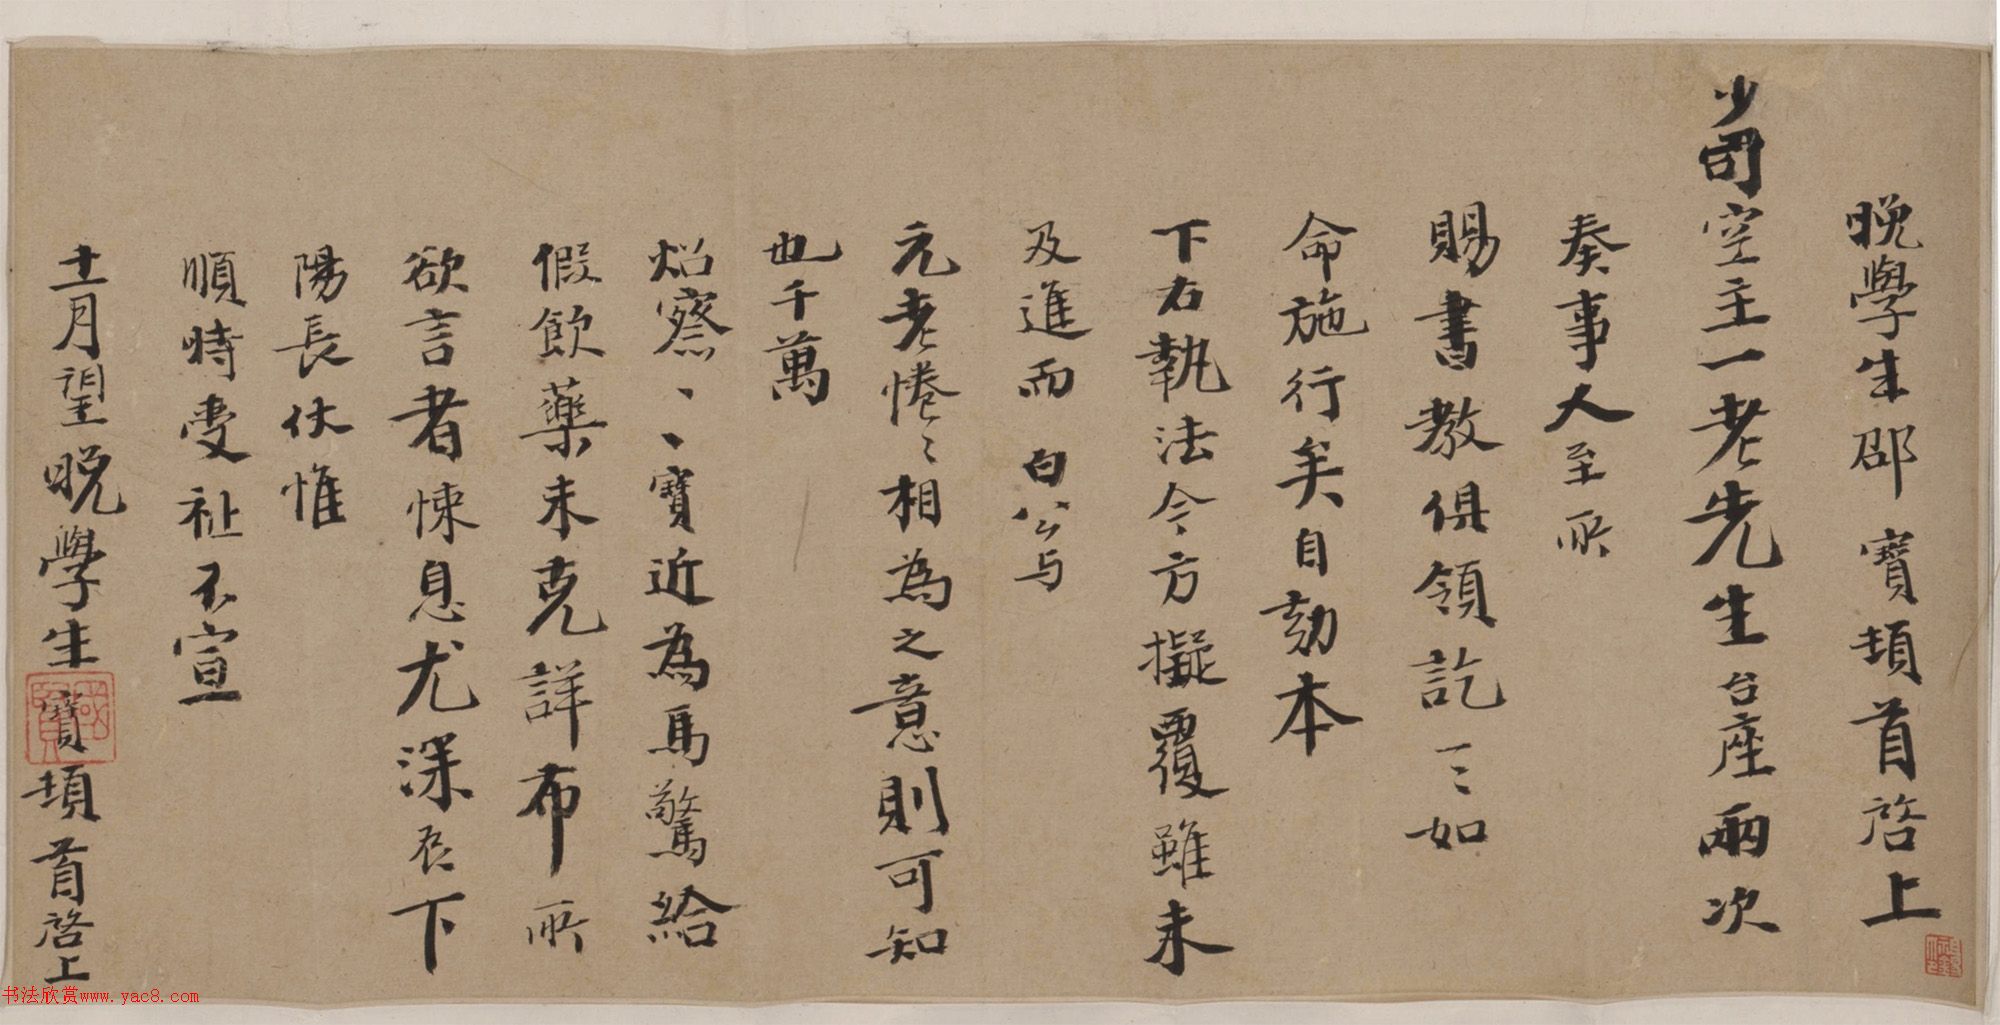 晚學生邵寶頓首啓上
少司空主一老先生台座兩次
奏事人至所
賜書教俱領訖一〻如
命施行矣自劾本
下右執法令方擬覆雖未
及進而白公与
元老惓〻相為之意則可知
也千萬
炤察〻〻寶近為馬驚給
假飲藥未克詳布所
欲言者悚息尤深辰下
陽長伏惟
順時受祉不宣
十一月望晚學生寶頓首啓上
國賢
书法欣赏www.yac8.com